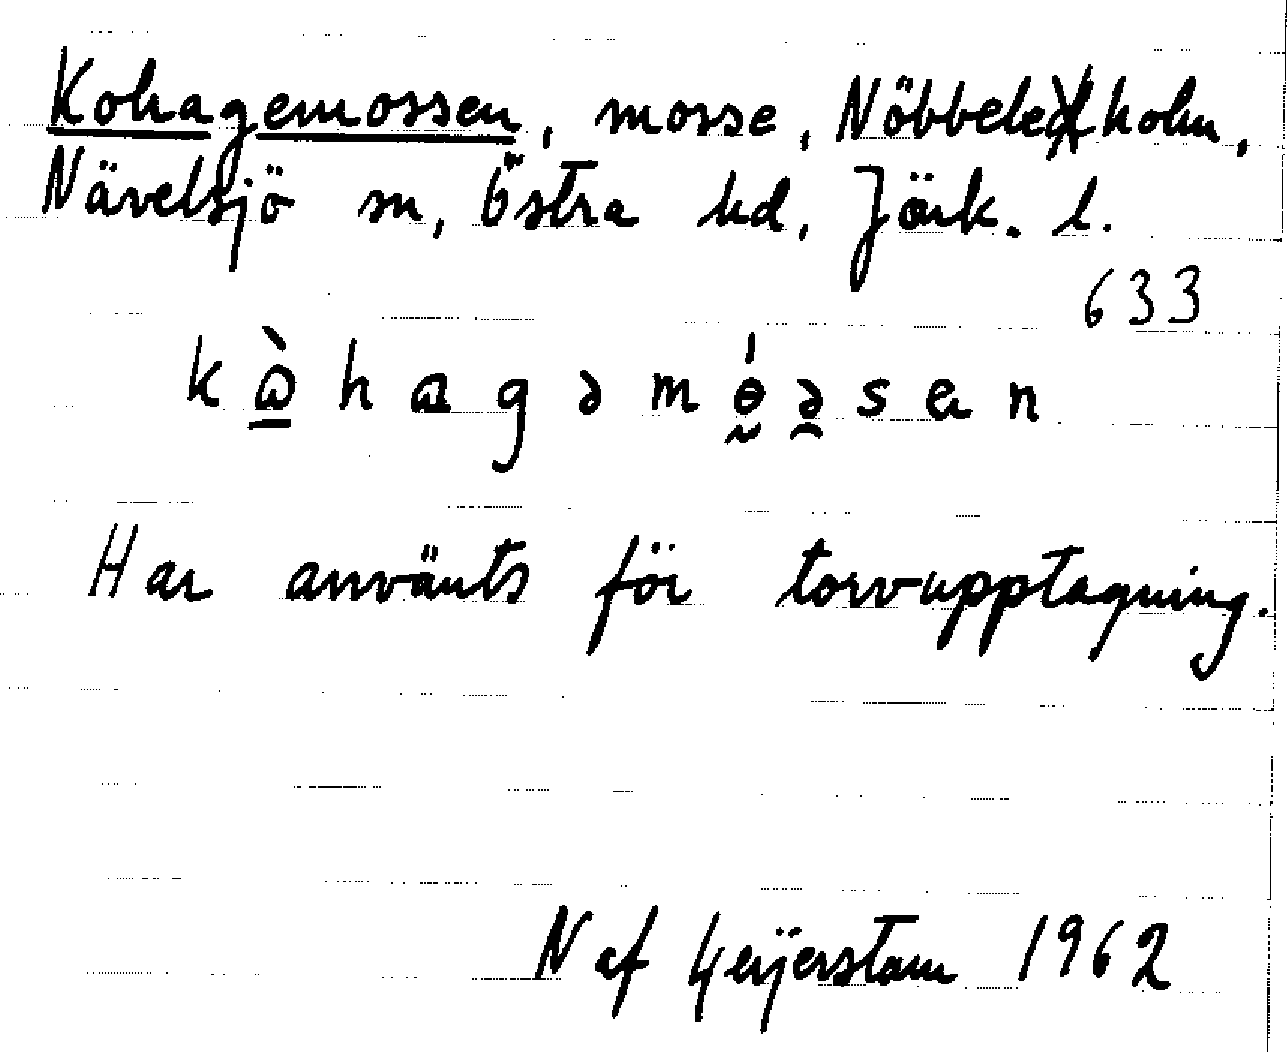 Kohagemossen, mosse, Nöbbeleholm,
Nävelsjö sn, Östra hd, Jönk. l.
633
kɷ̀hagəmɵ́əsen
Har använts för torvupptagning.
N af Geijerstam 1962